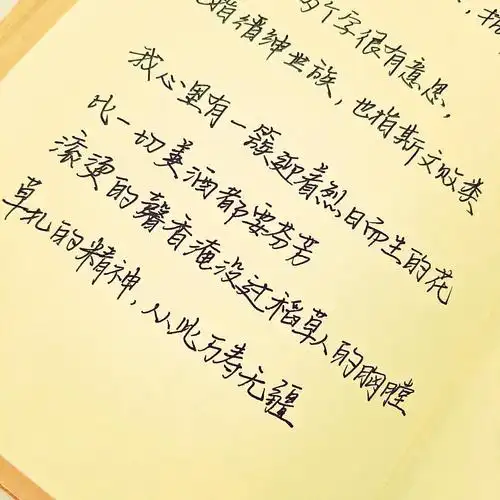 个字很有意思,
指缙绅世族,也指斯文败类
我心里有一簇迎着烈日而生的花
比一切美酒都要芬芳
滚烫的馨香淹没过稻草人的胸膛
草扎的精神,从此万寿无疆